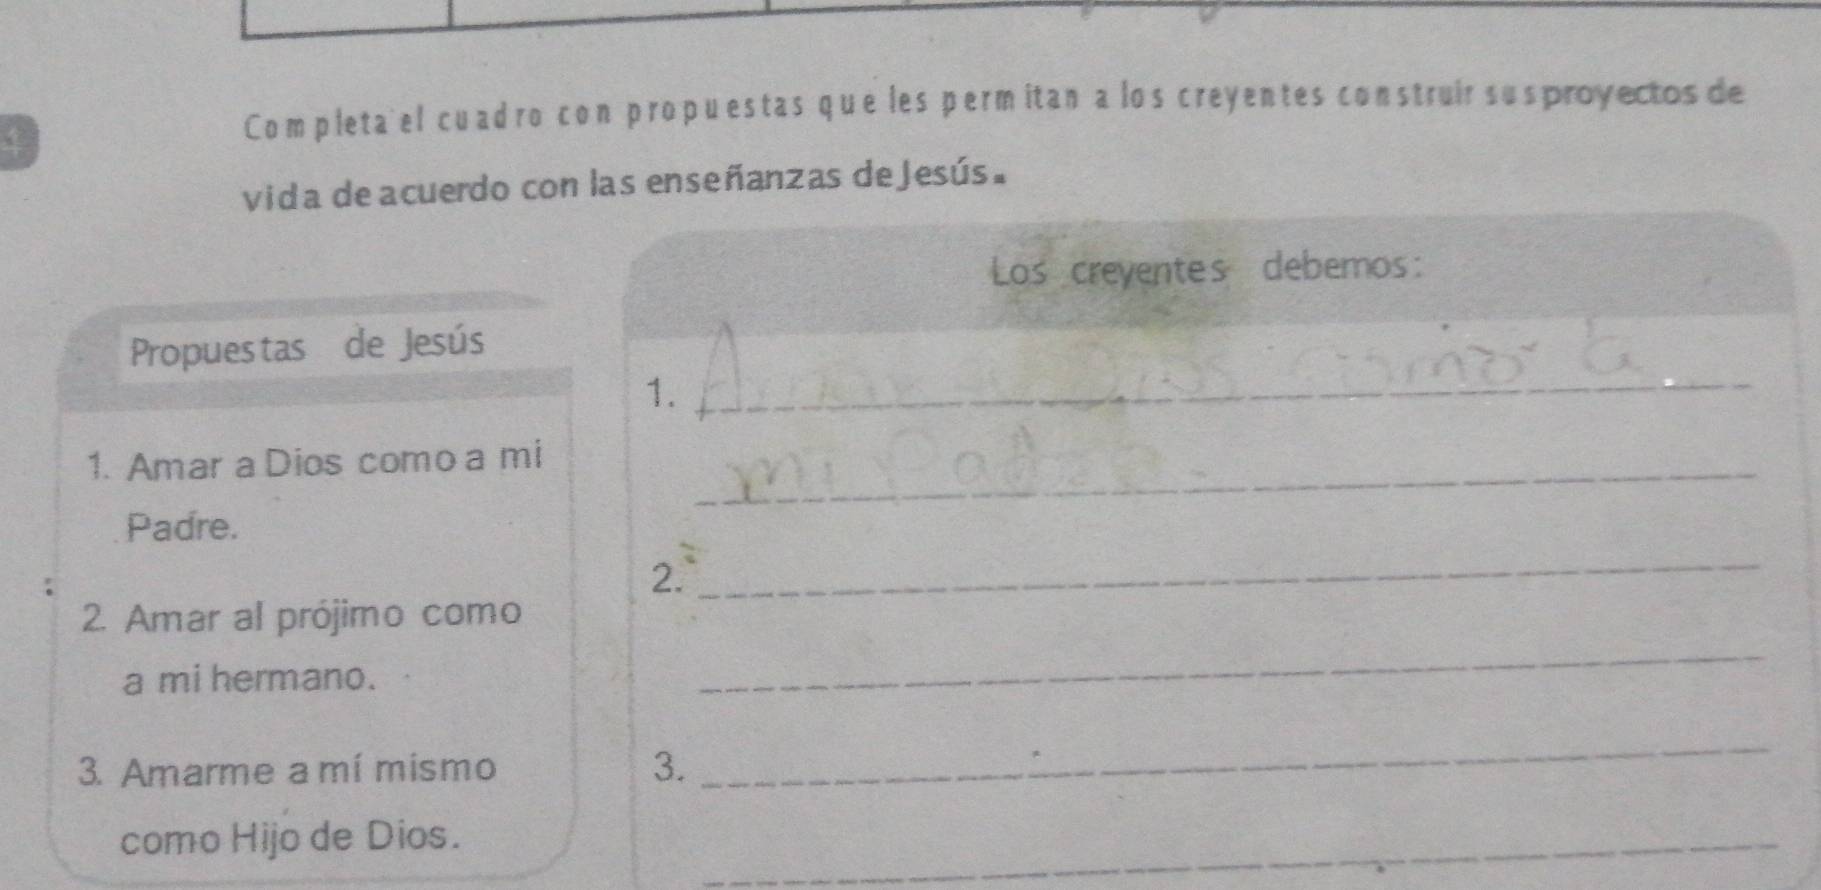 4
Completa el cuadro con propuestas que les permitan a los creyentes construir sus proyectos de
vida de acuerdo con las enseñanzas de Jesús.
Propuestas de Jesús
1. Amar a Dios como a mi
Padre.
2. Amar al prójimo como
a mi hermano.
3. Amarme a mí mismo
como Hijo de Dios.
Los creyentes debemos:
1. Amar a Dios como a
mi Padre.
2.
3.